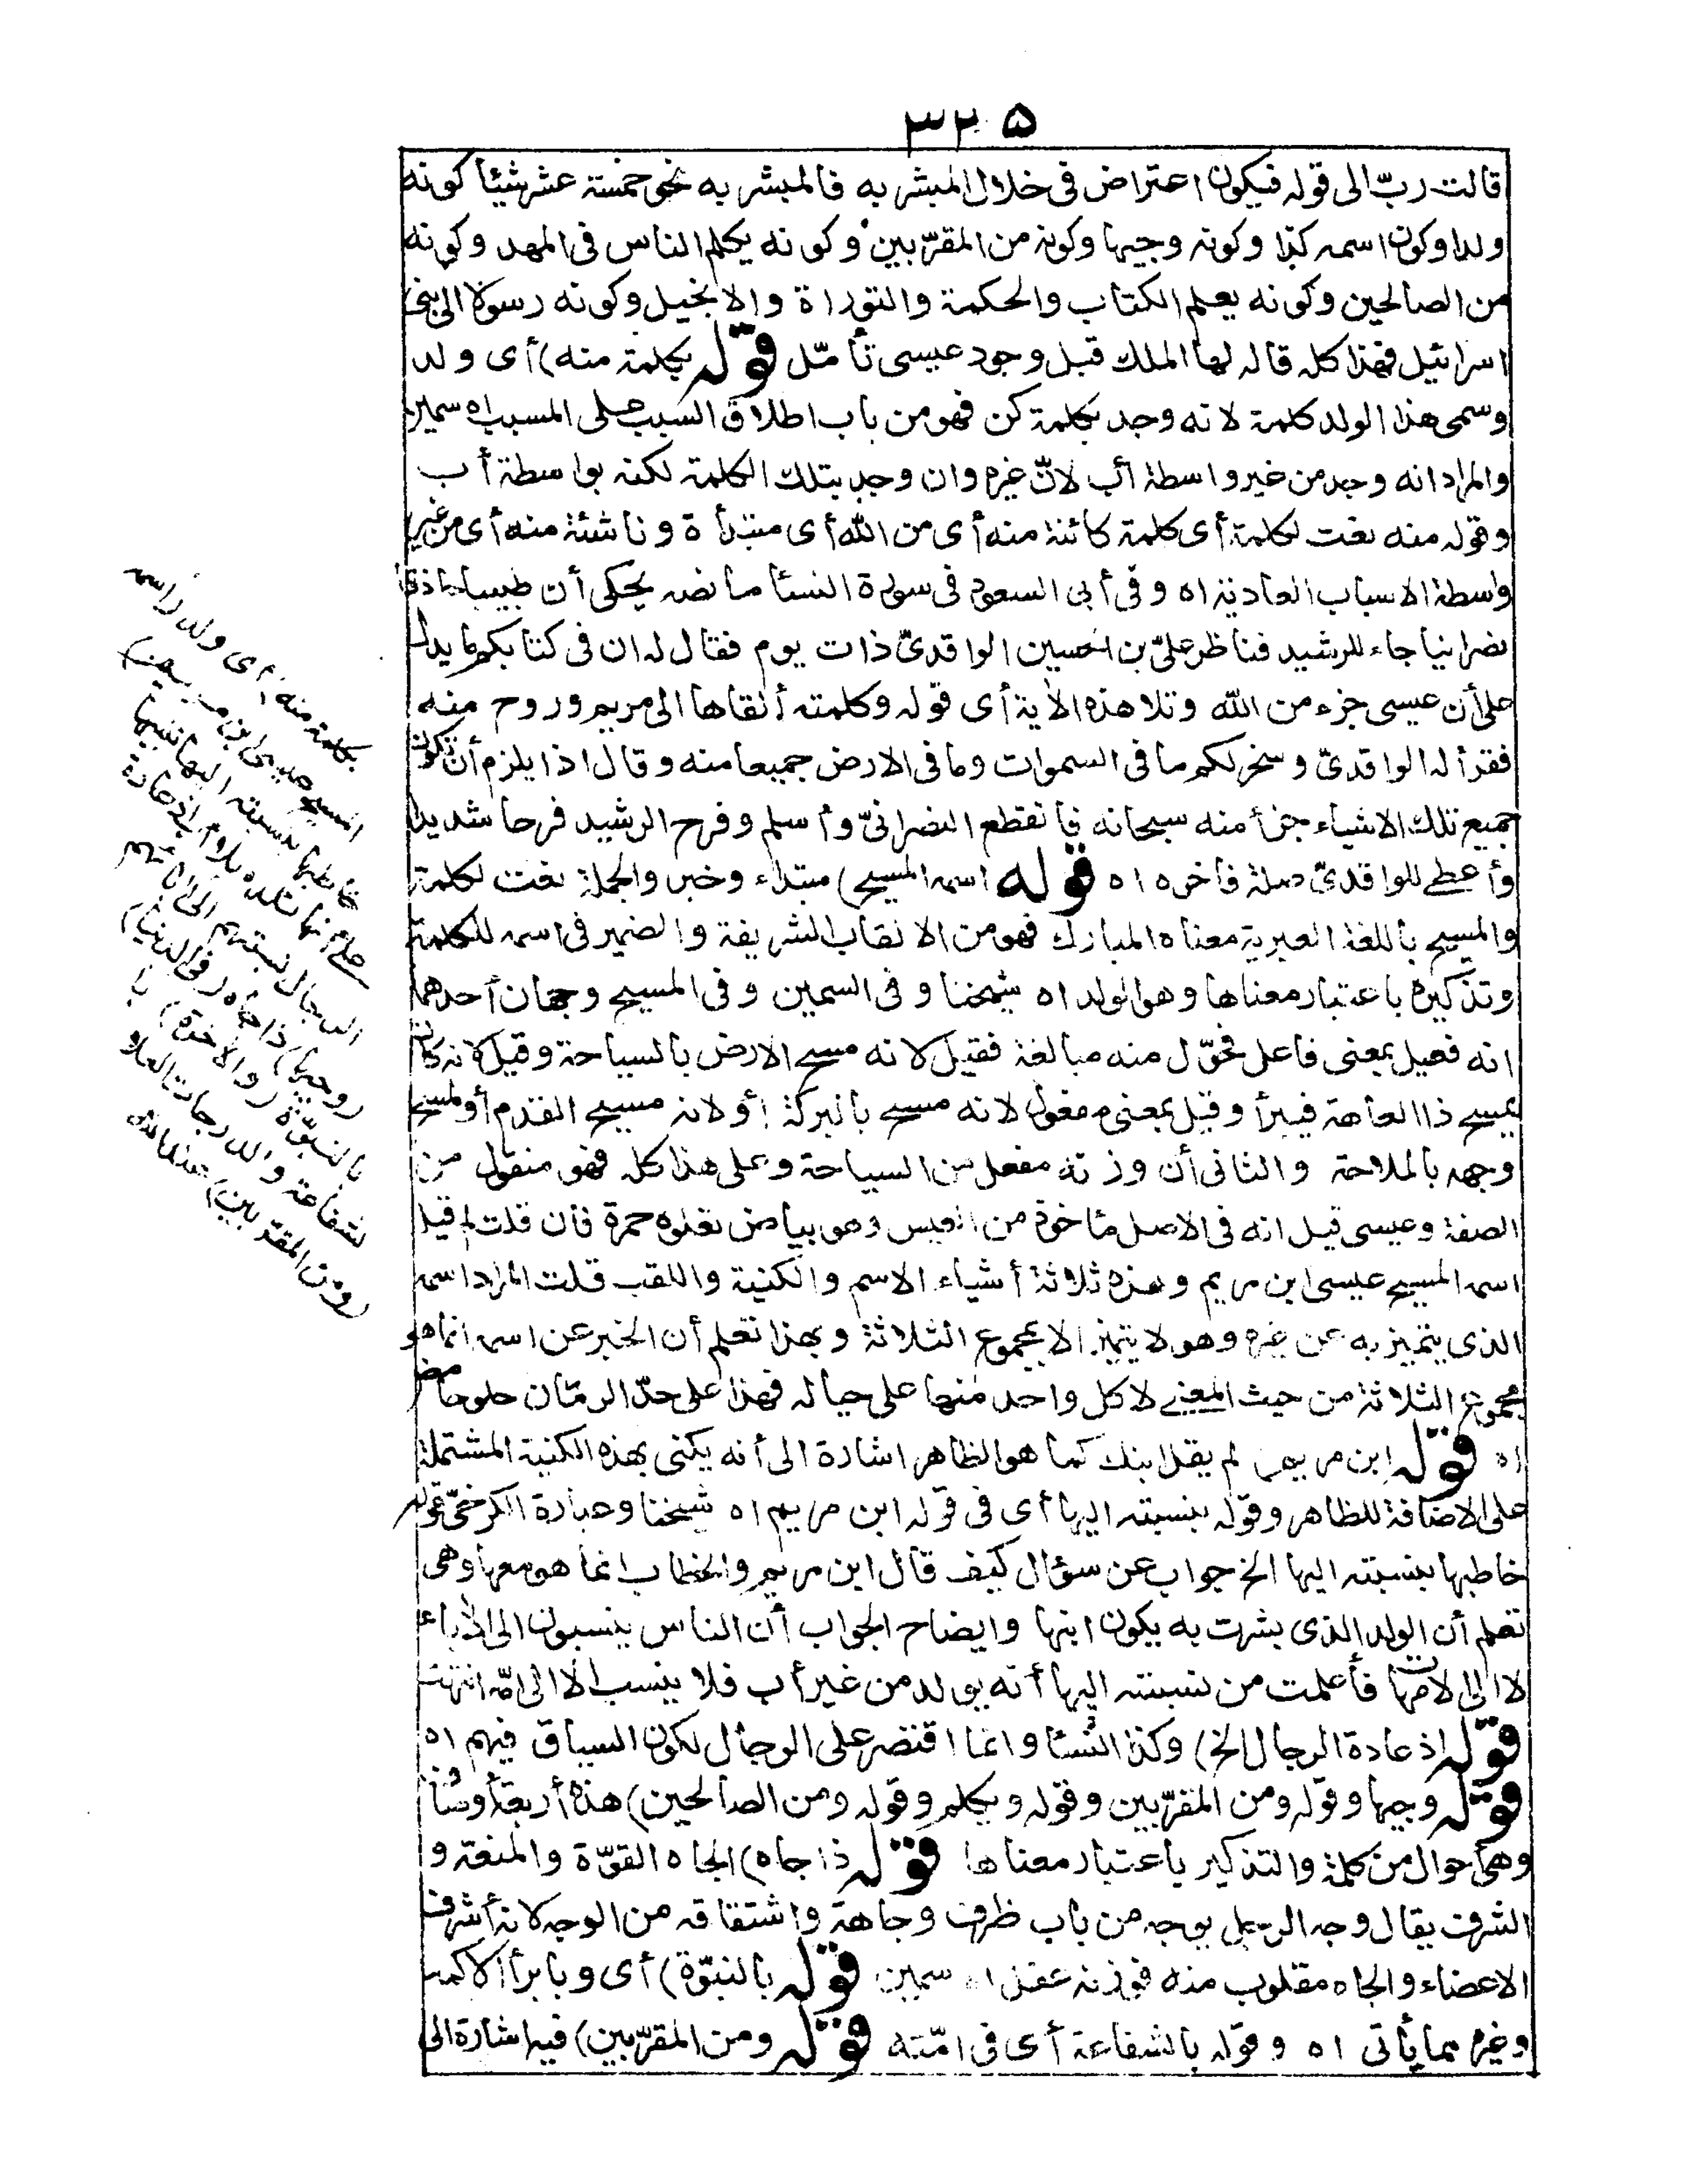 ٣٢٥
قالت رب الى قوله فيكون اعتراض فى خلال المبشر به فالمبشر به نحو خمسة عشر شيئا كونه
ولدا وكون اسمه كذا وكونه وجيها وكونه من المقربين وكونه يكلم الناس فى المهد وكونه
من الصالحين وكونه يعلم الكتاب والحكمة والتوراة والانجيل وكونه رسولا الى بنى
اسرائيل فهذا كله قاله لها الملك قبل وجود عيسى تأمّل قوله بكلمة منه) أى ولد
وسمى هذا الولد كلمة لانه وجد بكلمة كن فهو من باب اطلاق السبب على المسبب اه سمين
والمراد انه وجد من غير واسطة أب لانّ غيره وان وجد بتلك الكلمة لكنه بواسطة أب
وقوله منه نعت لكلمة أى كلمة كائنة منه أى من الله أى مبتدأة وناشئة منه أى من غير
واسطة الاسباب العادية اه وفى أبى السعود فى سورة النسا ما نصه يحكى أن طبيبا حاذقا
نصرانيا جاء للرشيد فناظر علىّ بن الحسين الواقدىّ ذات يوم فقال له ان فى كتابكم ما يدل
على أن عيسى جزء من الله وتلا هذه الأية أى قوله وكلمته ألقاها الى مريم وروح منه
فقرأ له الواقدىّ وسخر لكم ما فى السموات وما فى الارض جميعا منه وقال اذا يلزم أن تكون
جميع تلك الاشياء جزأ منه سبحانه فانقطع النصرانىّ وأسلم وفرح الرشيد فرحا شديدا
وأعطى للواقدىّ صلة فاخره اه قوله اسمه المسيح) مبتداء وخبر والجملة نعت لكلمة
والمسيح باللغة العبرية معناه المبارك فهو من الالقاب الشريفة والضمير فى اسمه للكلمة
وتذكيره باعتبار معناها وهو الولد اه شيخنا وفى السمين وفى المسيح وجهان أحدهما
انه فعيل بمعنى فاعل فحوّل منه مبالغة فقيل لانه مسح الارض بالسياحة وقيل لانه كان
يمسح ذا العاهة فيبرأ وقيل بمعنى مفعول لانه مسح بالبركة أو لانه مسيح القدم أو لمسح
وجهه بالملاحة والثانى أن وزنه مفعل من السياحة وعلى هذا كله فهو منقول من
الصفة وعيسى قيل انه فى الاصل مأخوذ من العيس وهو بياض تعلوه حمرة فان قلت لم قيل
اسمه المسيح عيسى ابن مريم وهذه ثلاثة أشياء الاسم والكنية واللقب قلت المراد اسمه
الذى يتميز به عن غيره وهو لا يتميز الا بمجموع الثلاثة وبهذا تعلم أن الخبر عن اسمه انما هو
مجموع الثلاثة من حيث المعنى لا كل واحد منها على حياله فهذا على حدّ الرمّان حلو حامض
اه قوله ابن مريم) لم يقل ابنك كما هو الظاهر اشارة الى أنه يكنى بهذه الكنية المشتملة
على الاضافة للظاهر وقوله بنسبته اليها أى فى قوله ابن مريم اه شيخنا وعبارة الكرخىّ قوله
خاطبها بنسبته اليها الخ جواب عن سؤال كيف قال ابن مريم والخطاب انما هو معها وهى
تعلم أن الولد الذى بشرت به يكون ابنها وايضاح الجواب أن الناس ينسبون الى الأباء
لا الى الامهات فأعلمت من نسبته اليها أنه يولد من غير أب فلا ينسب الا الى امّه انتهت
قوله اذ عادة الرجال الخ) وكذا النسا وانما اقتصر على الرجال لكون السياق فيهم اه
قوله وجيها وقوله ومن المقرّبين وقوله ويكلم وقوله ومن الصالحين) هذه أربعة
وهى احوال من كلمة والتذكير باعتبار معناها قوله ذا جاه) الجاه القوّة والمنعة و
الشرف يقال وجه الرجل يوجه من باب ظرف وجاهة واشتقاقه من الوجه لانه أشرف
الاعضاء والجاه مقلوب منه فوزنه عفل اه سمين قوله بالنبوّة) أى وبابرأ الاكمه
وغيره مما يأتى اه وقوله بالشفاعة أى فى امّته قوله ومن المقرّبين) فيه اشارة الى
بكلمة منه) أى ولد (اسمه
المسيح عيسى ابن مريم)
خاطبها بنسبته اليها تنبيها
على أنها تلده بلا أب اذ عادة
الرجال نسبتهم الى ابائهم
(وجيها) ذا جاه (فى الدنيا)
بالنبوّة (والأخرة) با
لشفاعة والدرجات العلا
(ومن المقرّبين) عند الله